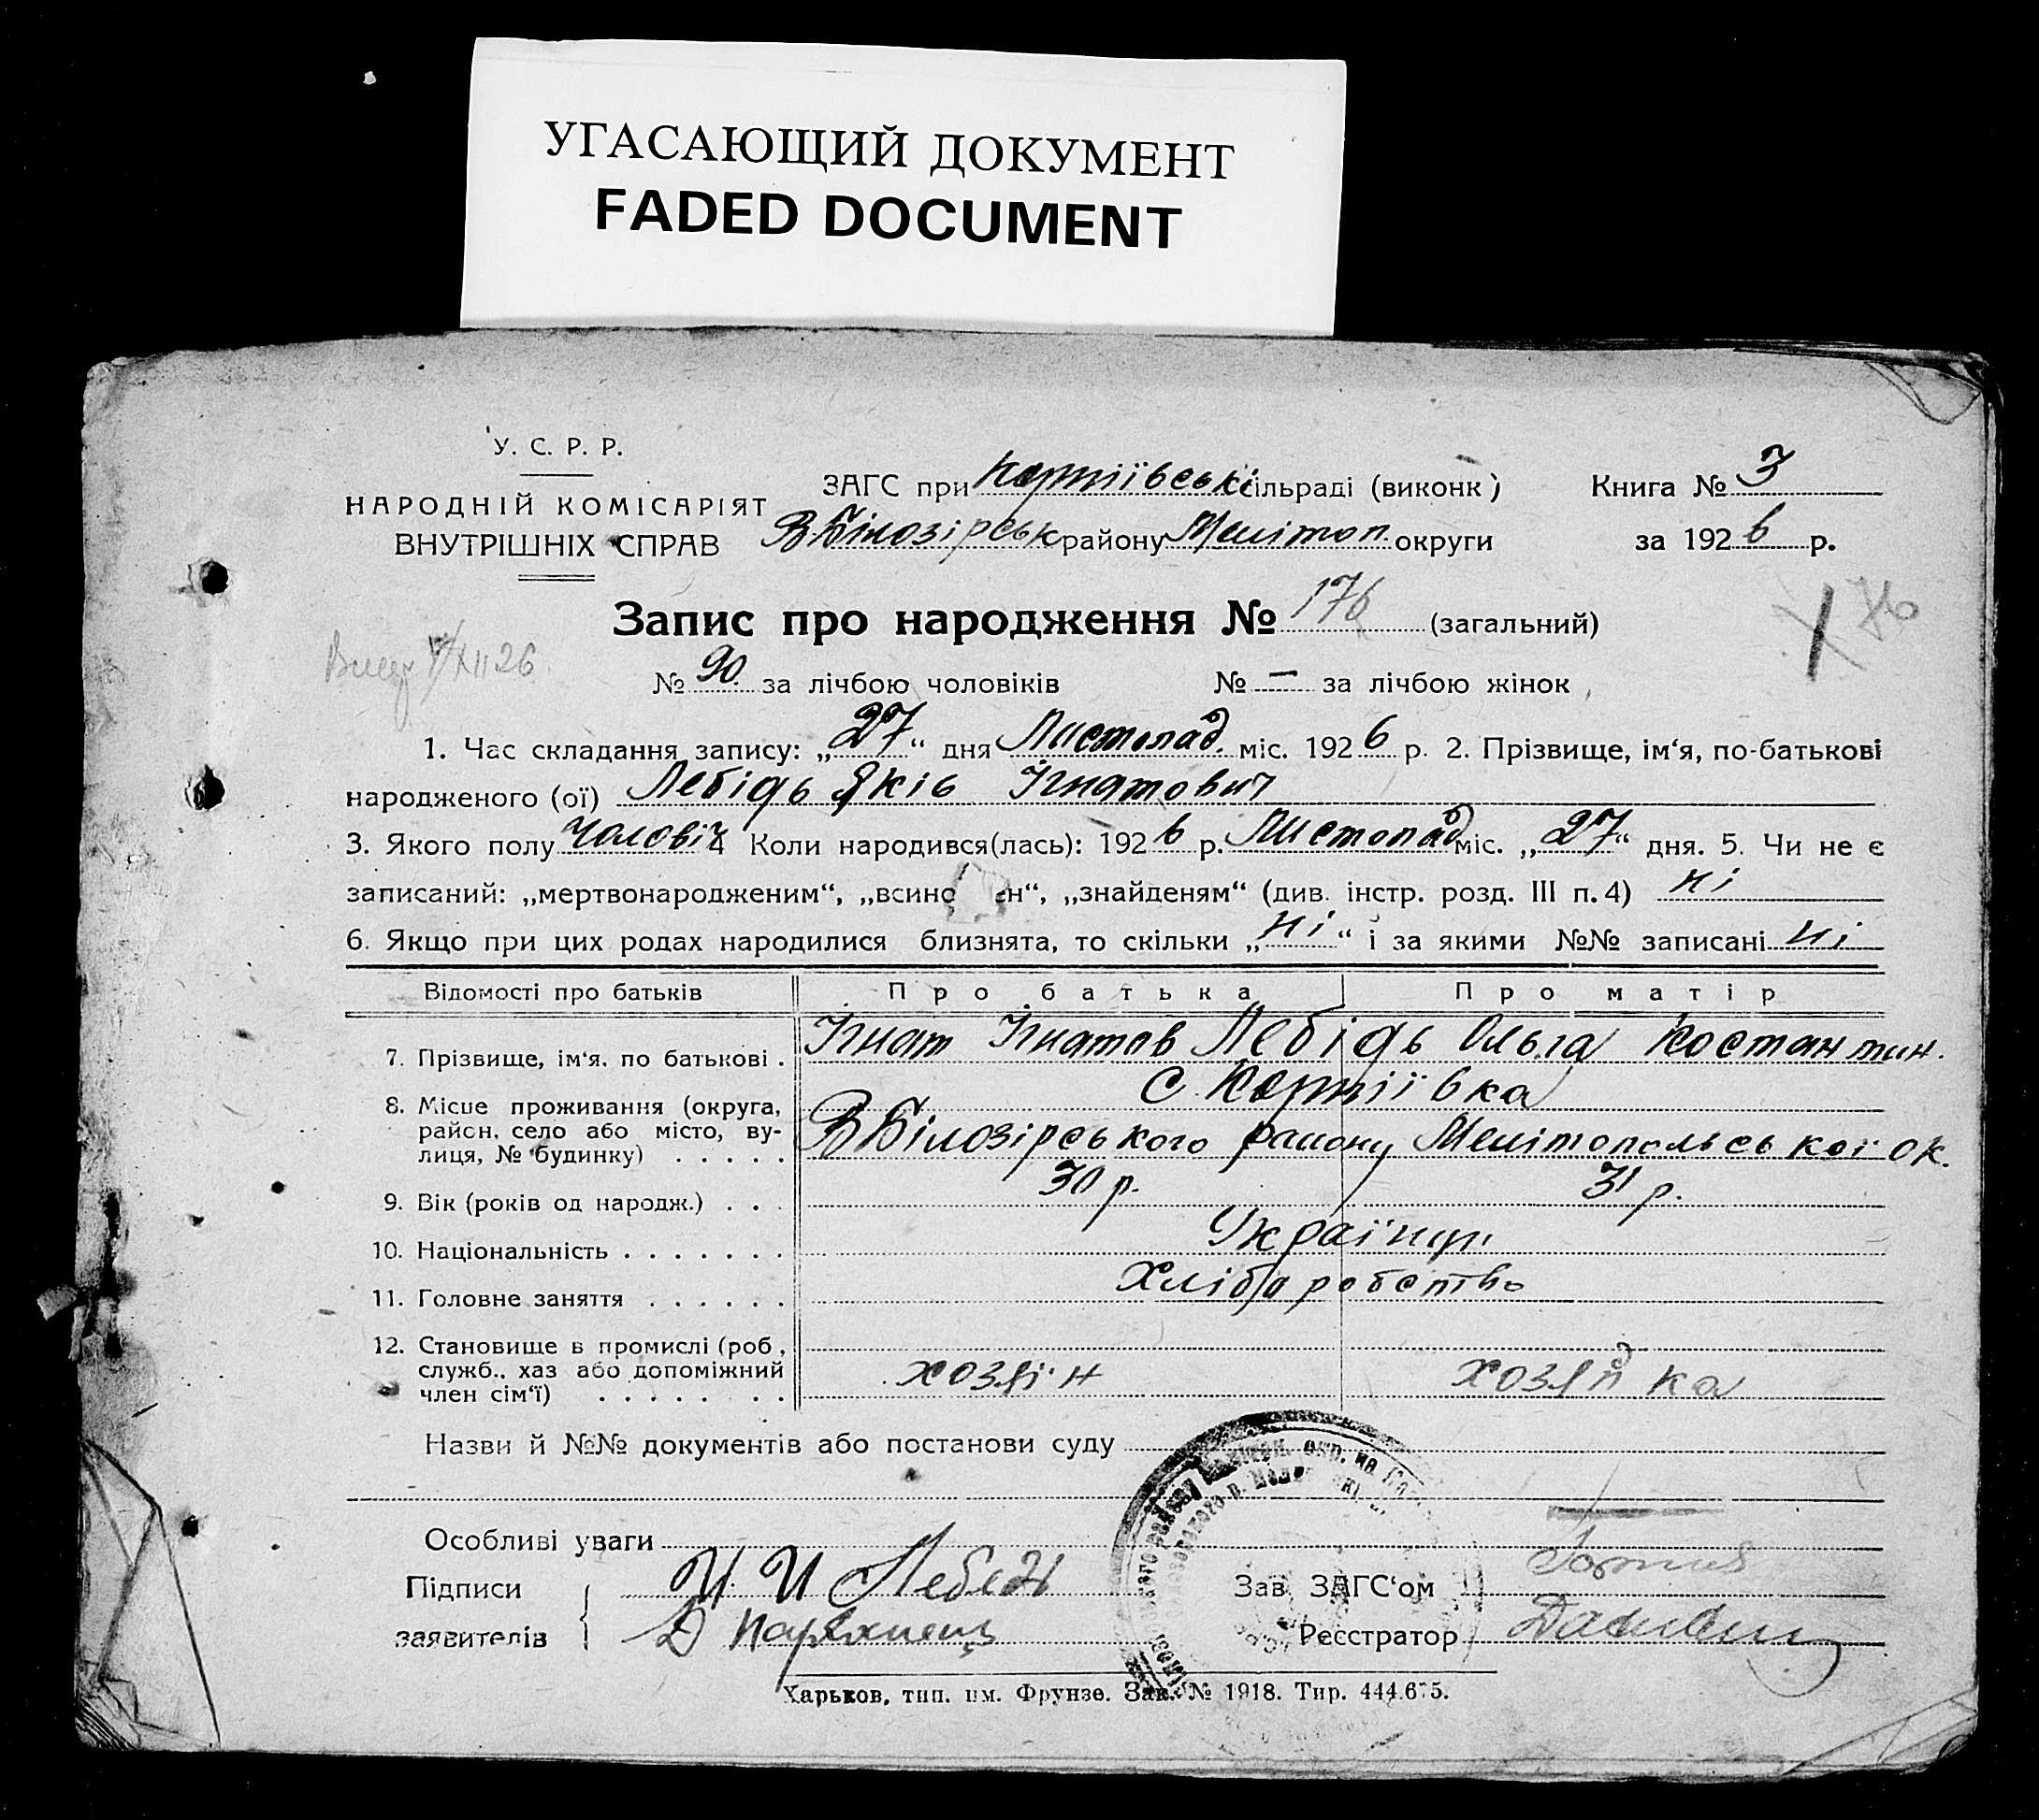 УГАСАЮЩИЙ ДОКУМЕНТ
FADED DOCUMENT
У. С. Р. Р.
НАРОДНІЙ КОМІСАРІЯТ
ВНУТРІШНІХ СПРАВ
ЗАГС при Корніївські сільраді (виконк)
ВБілозірськ району Мелітоп. округи
Книга № 3
за 1926 р.
Запис про народження № 176 (загальний)
76
№ 90 за лічбою чоловіків № — за лічбою жінок
1. Час складання запису: „27“ дня Листопад. міс. 1926 р. 2. Прізвище, ім‘я, по-батькові
народженого (ої) Лебідь Яків Ігнатович
3. Якого полу Чоловіч 4 Коли народився(лась): 1926 р. Листопад міс. „27“ дня. 5. Чи не є
записаний: „мертвонародженим“, „всино ен“, „знайденям“ (див. інстр. розд. III п. 4) ні
6. Якщо при цих родах народилися близнята, то скільки „ні“ і за якими №№ записані ні
Відомості про батьків Про батька Про матір
7. Прізвище, ім‘я, по батькові . Ігнат Ігнатов Лебідь Ольга Костантин.
8. Місце проживання (округа, С. Корніївка
район, село або місто, ву-
лиця, № будинку) . . . . . ВБілозірського району Мелітопольської ок.
9. Вік (років од народж.) . . . 30 р. 31 р.
10. Національність . . . . . . . Українці
11. Головне заняття . . . . . . Хліборобство
12. Становище в промислі (роб.,
служб., хаз або допоміжний хозяїн хозяйка
член сім‘ї) . . . . . . . .
Назви й №№ документів або постанови суду
Особливі уваги
Підписи И И Лебедь Зав. ЗАГС‘ом
заявителів Д Реєстратор
Харьков, тип. им. Фрунзе. Зак. № 1918. Тир. 444.675.